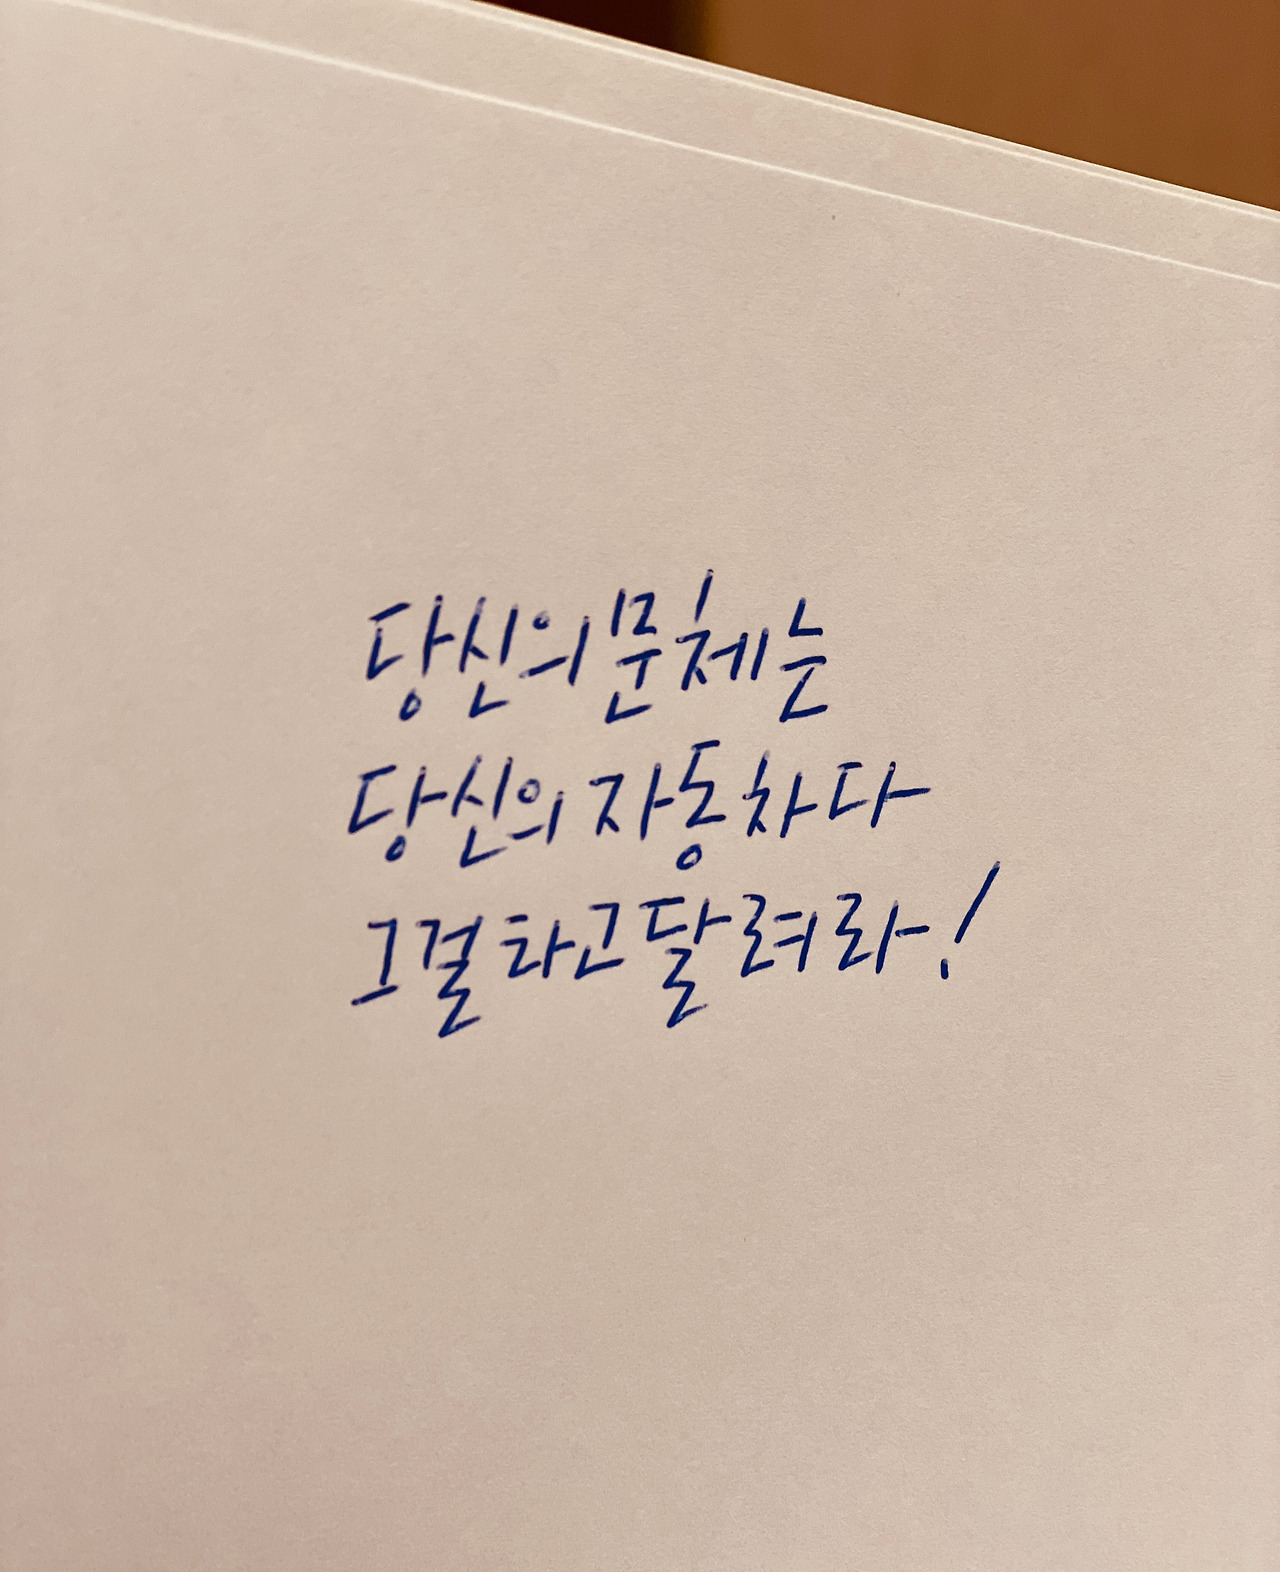 당신의 문체는
당신의 자동차다
그걸 타고 달려라!